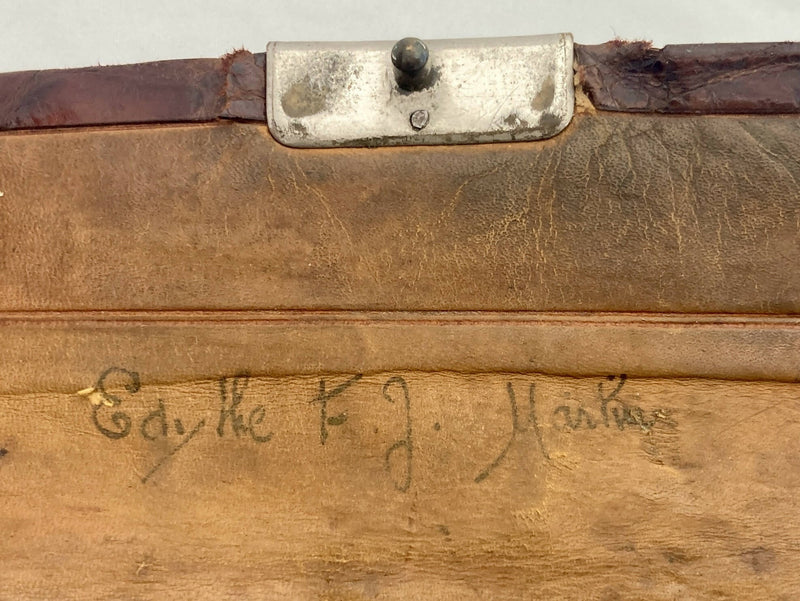 Edythe F. J. Martin